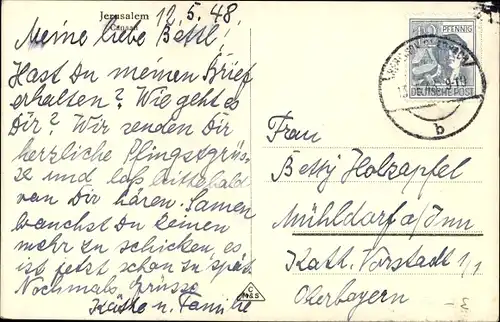 Jerusalem
Canaan
12.5.48.
Meine liebe Bettl!
Hast Du meinen Brief
erhalten? Wie geht es
Dir? Wir senden Dir
herzliche Pfingstgrüs-
se und laß bitte bald
van Dir hären. Samen
brauchst Du keinen
mehr zu schicken, es
ist jetzt schon zu spät.
Nochmals Grüsse
Käthe u. Familie
12 PFENNIG
DEUTSCHE POST
b
Frau
Betty Holzapfel
Mühldorf a/Inn
Kath. Vorstadt 1/1
Oberbayern